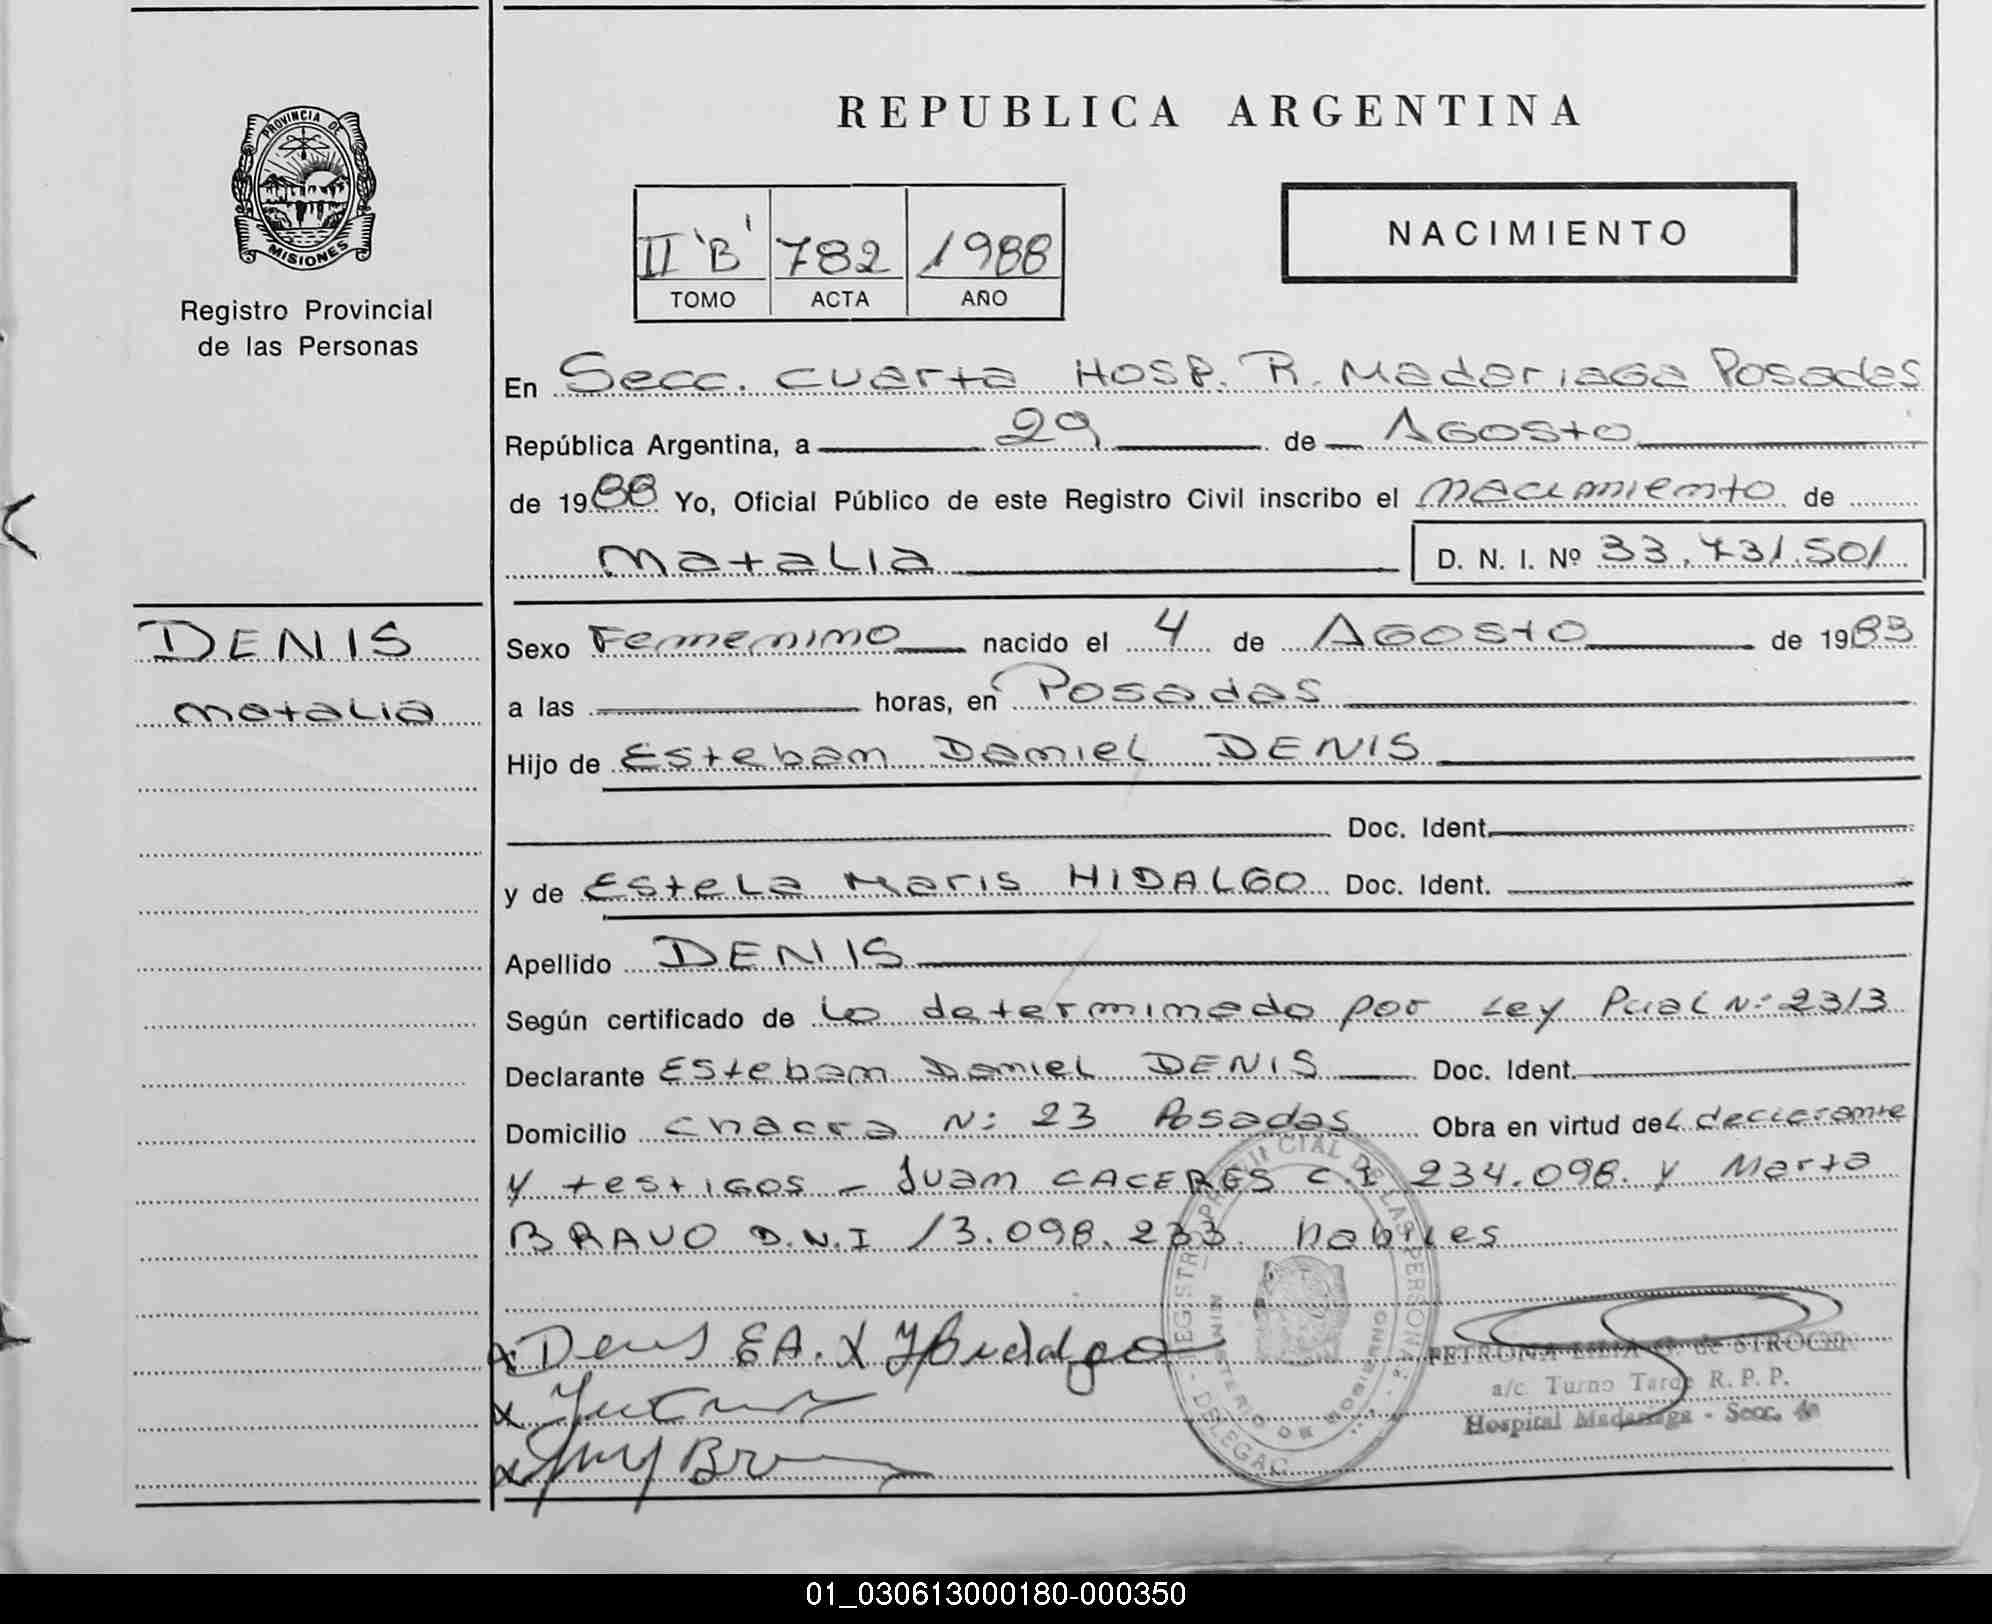 REPUBLICA ARGENTINA
PROVINCIA DE MISIONES
Registro Provincial
de las Personas
II 'B' 782 1988
TOMO ACTA AÑO
NACIMIENTO
En Secc. cuarta Hosp. R. Madariaga Posadas
República Argentina, a 29 de Agosto
de 1988 Yo, Oficial Público de este Registro Civil inscribo el nacimiento de
Natalia D. N. I. Nº 33.731.501
DENIS
Natalia
Sexo Femenino nacido el 4 de Agosto de 1983
a las horas, en Posadas
Hijo de Esteban Daniel DENIS
Doc. Ident.
y de Estela Maris HIDALGO Doc. Ident.
Apellido DENIS
Según certificado de Lo determinado por Ley Pcial N: 2313
Declarante Esteban Daniel DENIS Doc. Ident.
Domicilio chacra N: 23 Posadas Obra en virtud del declarante
y testigos - Juan CACERES C.I 234.098. y Marta
BRAVO D.N.I 13.098.233 habiles
x Denis E A. x Hidalgo
PETRONA de STROCEN
a/c. Turno Tarde R. P. P.
Hospital Madariaga - Secc. 4a
REGISTRO PROVINCIAL DE LAS PERSONAS - DELEGAC
MINISTERIO DE GOBIERNO
01_030613000180-000350